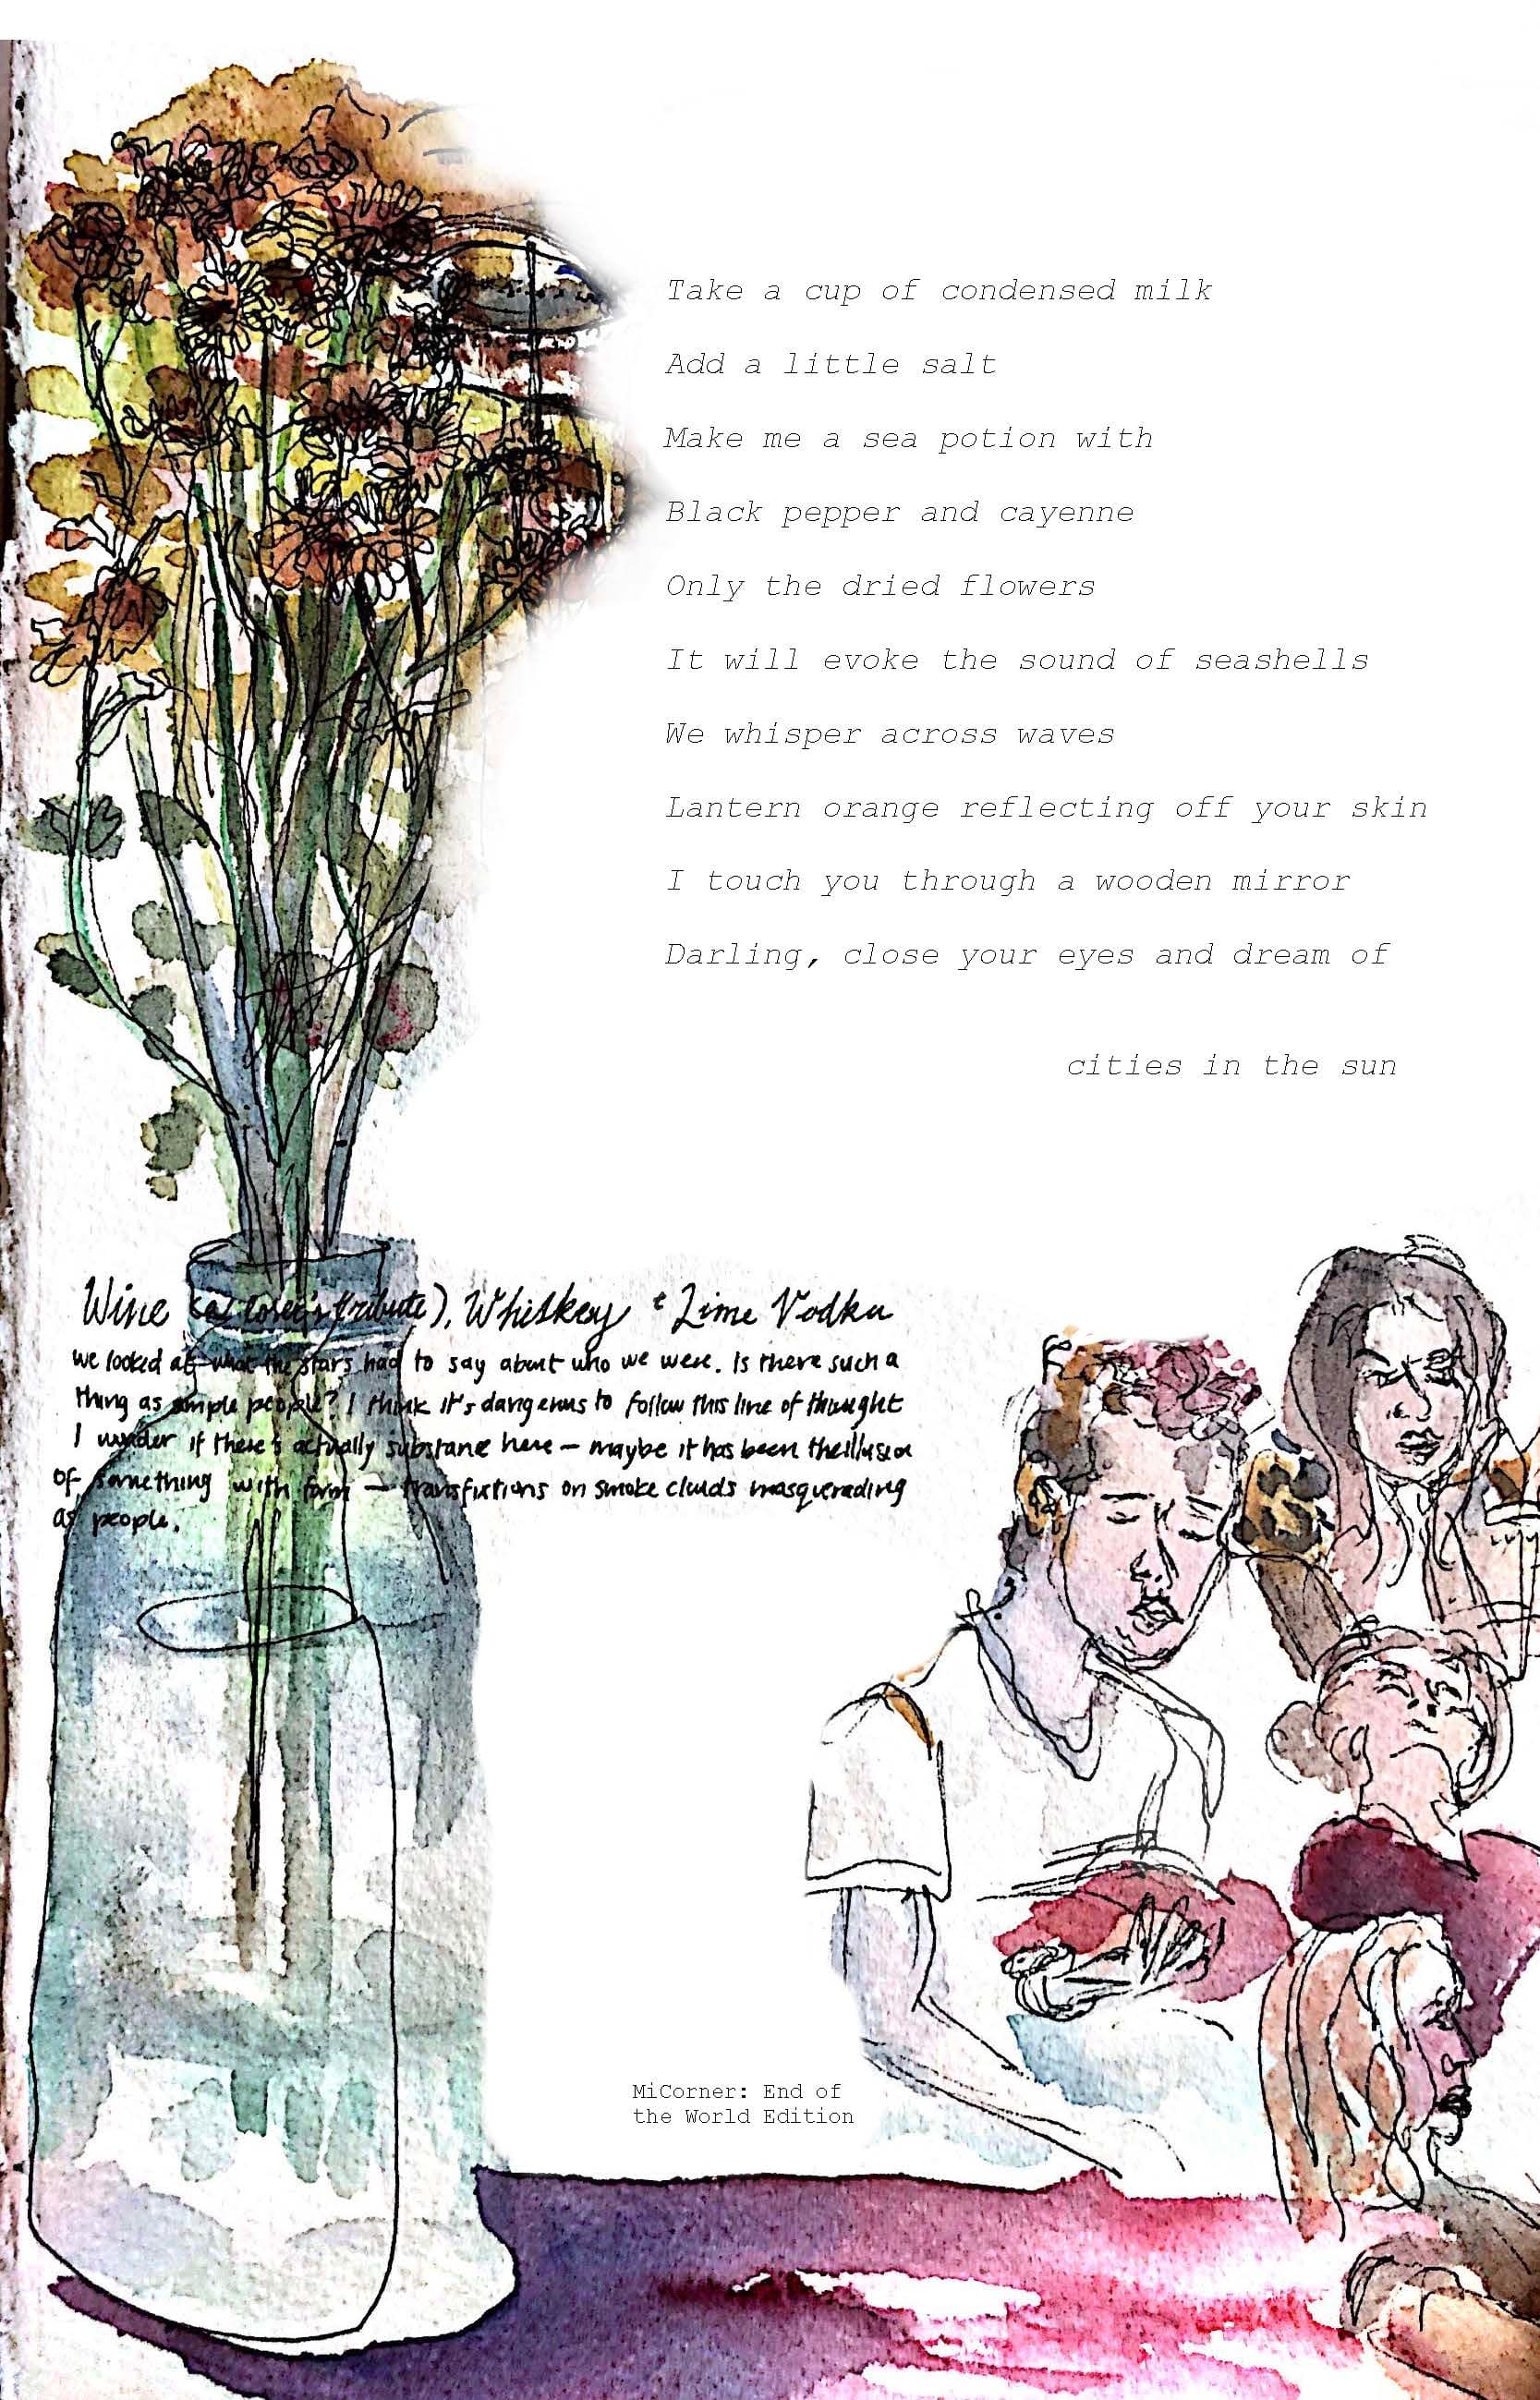 Take a cup of condensed milk
Add a little salt
Make me a sea potion with
Black pepper and cayenne
Only the dried flowers
It will evoke the sound of seashells
We whisper across waves
Lantern orange reflecting off your skin
I touch you through a wooden mirror
Darling, close your eyes and dream of
cities in the sun
Wine (a loser's tribute), Whiskey + Lime Vodka
we looked at what the stars had to say about who we were. Is there such a
thing as simple people? I think it's dangerous to follow this line of thought
I wonder if there's actually substance here — maybe it has been the illusion
of something with form — on smoke clouds masquerading
as people.
MiCorner: End of
the World Edition